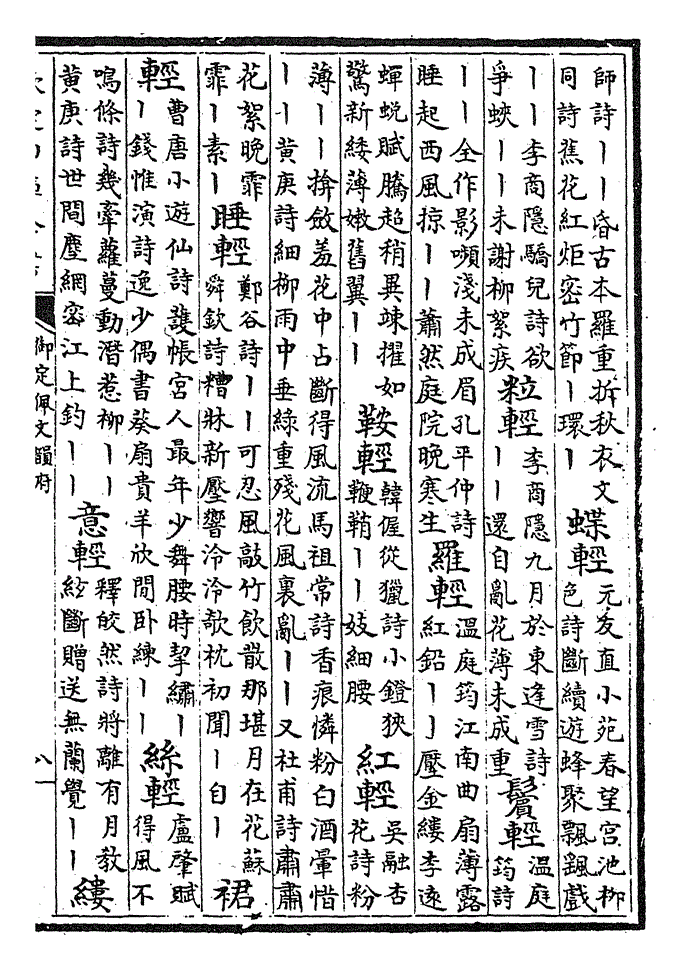 師詩丨丨昏古本羅重拆秋衣文
同詩蕉花紅炬密竹節丨環丨
蝶輕
元友直小苑春望宮池柳
色詩斷續遊蜂聚飄颻戲
丨丨李商隱驕兒詩欲
爭蛺丨丨未謝柳絮疾
粒輕
李商隱九月於東逢雪詩
丨丨還自亂花薄未成重
鬢輕
温庭
筠詩
丨丨全作影嚬淺未成眉孔平仲詩
睡起西風掠丨丨蕭然庭院晚寒生
羅輕
温庭筠江南曲扇薄露
紅鉛丨丨壓金縷李遠
蟬蛻賦騰超稍異竦擢如
驚新緌薄嫩舊翼丨丨
鞍輕
韓偓從獵詩小鐙狹
鞭鞘丨丨妓細腰
紅輕
吳融杏
花詩粉
薄丨丨掩斂羞花中占斷得風流馬祖常詩香痕憐粉白酒暈惜
丨丨黃庚詩細柳雨中垂綠重殘花風裏亂丨丨又杜甫詩肅肅
花絮晚霏
霏丨素丨
睡輕
鄭谷詩丨丨可忍風敲竹飲散那堪月在花蘇
舜欽詩糟牀新壓響泠泠欹枕初聞丨自丨
裙
輕
曹唐小遊仙詩護帳宮人最年少舞腰時挈繡丨
丨錢惟演詩逸少偶書葵扇貴羊欣閒卧練丨丨
絲輕
盧肇賦
得風不
鳴條詩幾牽蘿蔓動潛惹柳丨丨
黃庚詩世間塵網密江上釣丨丨
意輕
釋皎然詩將離有月教
絃斷贈送無蘭覺丨丨
縷
御定佩文韻府